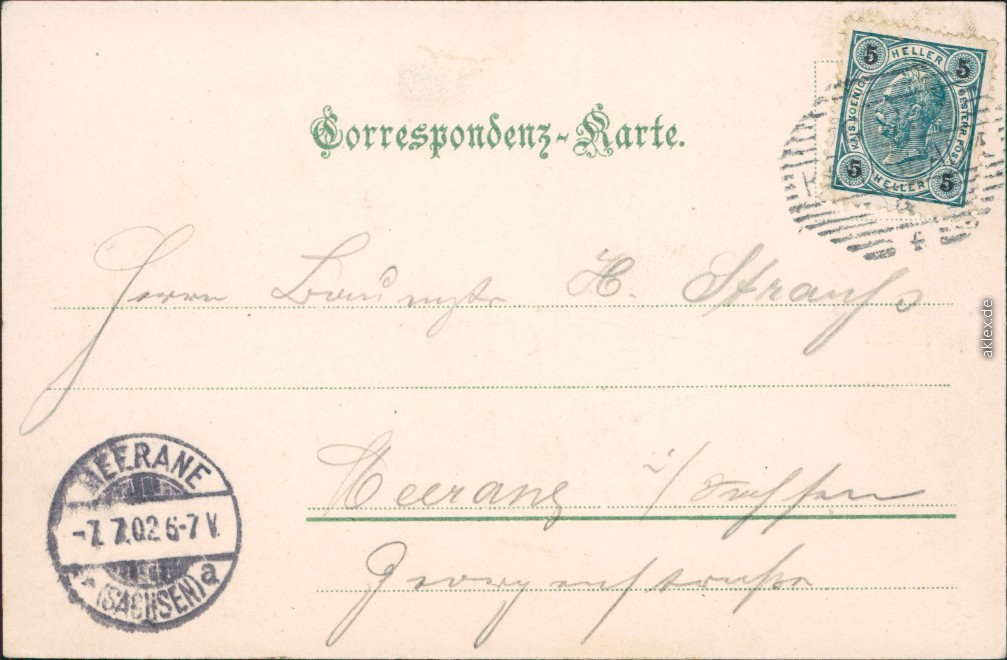 Correspondenz-Karte.
5 HELLER 5
KAIS. KOENIGL. OESTERR. POST
5 HELLER 5
Herrn H. Strauss
Meerane i/Sachsen
Georgenstrasse
MEERANE
-7.7.02.6-7V.
* (SACHSEN) a
aklex.de